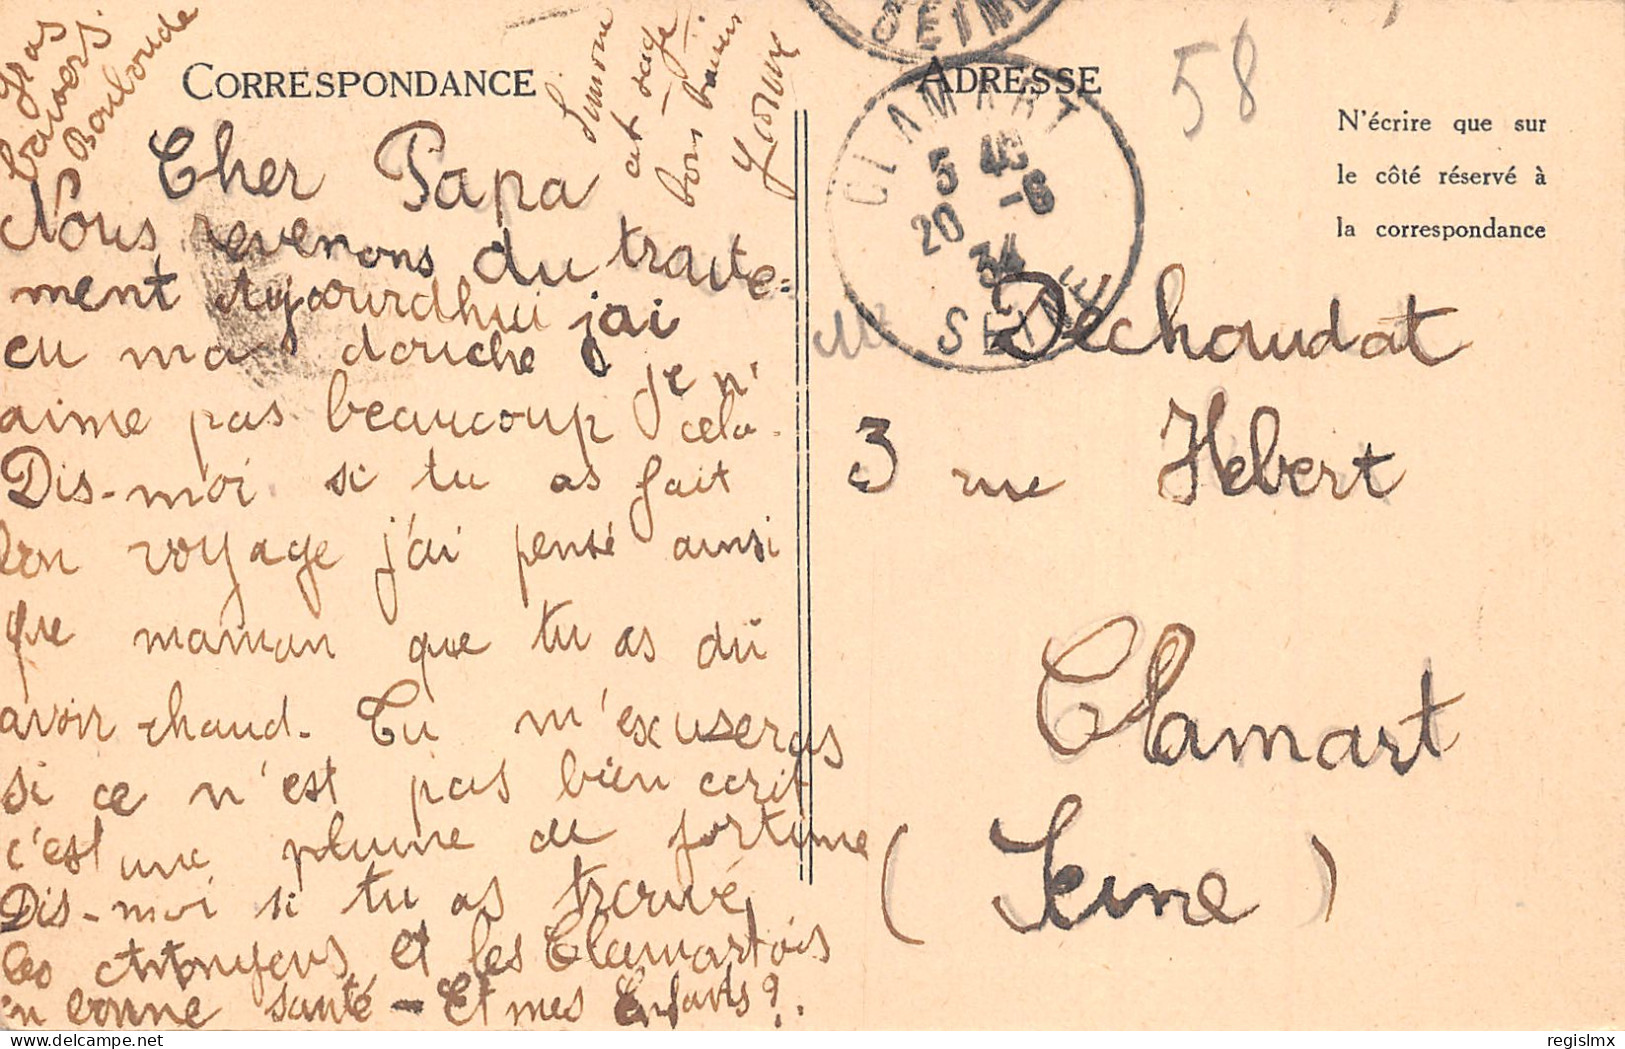 Gros
baisers
Bouboude
Simone
est sage
bons baisers
CORRESPONDANCE
Cher Papa
Nous revenons du traite=
ment Aujourdhui j'ai
eu ma douche je n'
aime pas beaucoup cela.
Dis-moi si tu as fait
bon voyage j'ai pensé ainsi
que maman que tu as dû
avoir chaud. Tu m'excuseras
si ce n'est pas bien ecrit
c'est une plume de fortune
Dis-moi si tu as trouvé
les et les Clamartois
en bonne santé - Et mes Enfants?.
SEINE
ADRESSE
58
N'écrire que sur
le côté réservé à
la correspondance
CLAMART
5 40
20 -6
34
SEINE
Mr Dechaudat
3 rue Hebert
Clamart
(Seine)
regislmx